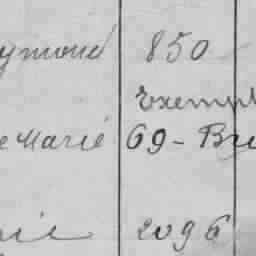 ymond 850
Exempl
e Marie 69 - Bru
2096